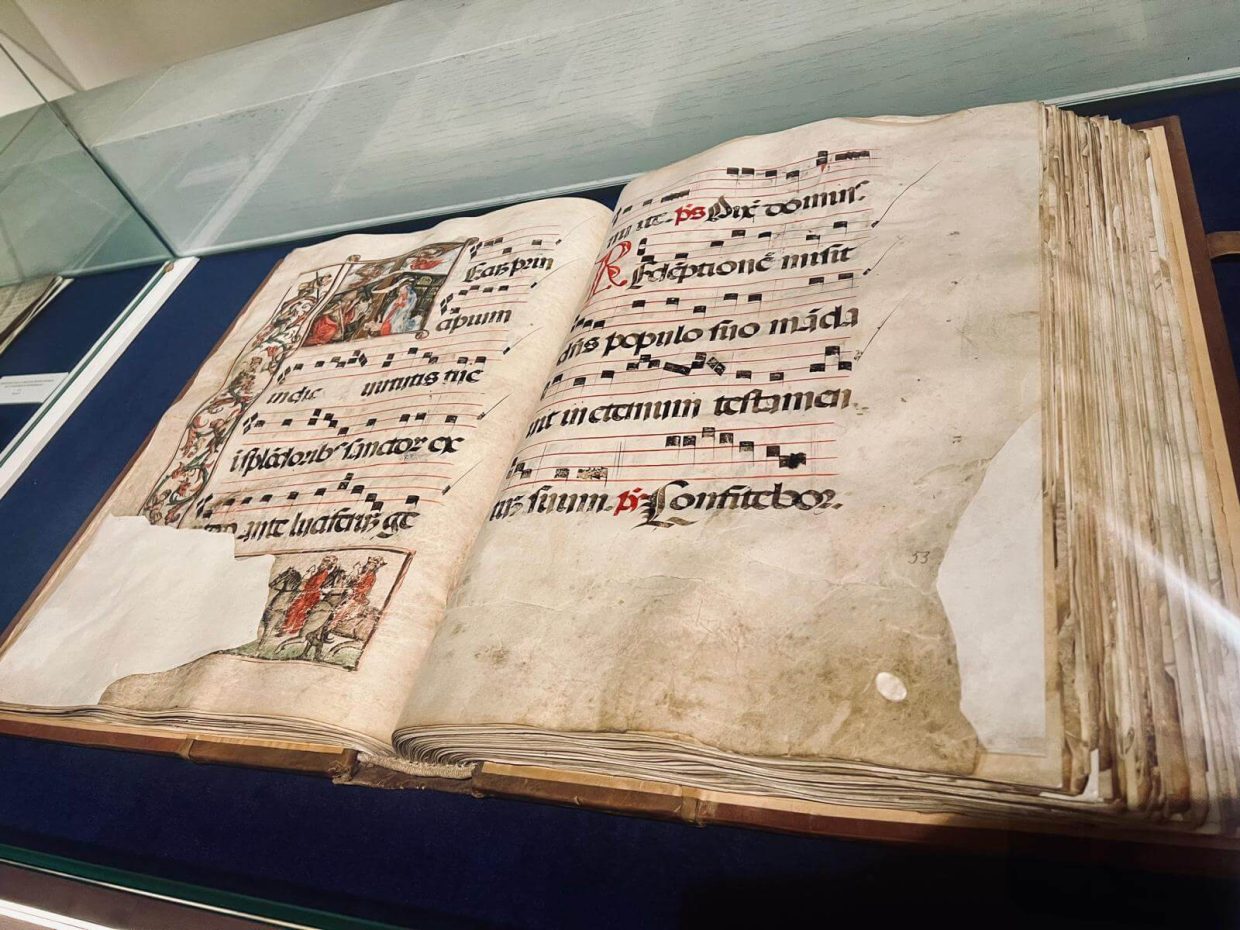 Ecuz prin
cipium
in die virtutis tue
i splēdorib' sanctor ex
ante luciferuz ge
nui te. p̄s Dix̄ domus.
Redēptionē misit
dn̄s populo suo māda
uit in eternum testamen
tuz suum. p̄s Confitebor.
53